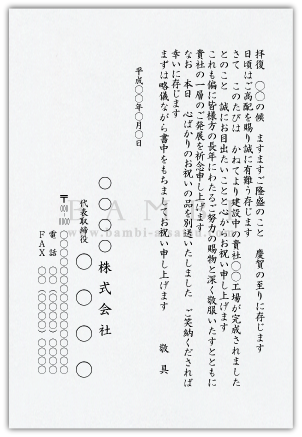 拝復　〇〇の候　ますますご隆盛のこと　慶賀の至りに存じます
日頃はご高配を賜り誠に有難う存じます
さて　このたびは　かねてより建設中の貴社〇〇工場が完成されました
とのこと　誠にお目出たいことと心からお祝い申し上げます
これも偏に皆様方の長年にわたるご努力の賜物と深く敬服いたすとともに
貴社の一層のご発展を祈念申し上げます
なお　本日　心ばかりのお祝いの品を別送いたしました　ご笑納くだされば
幸いに存じます
まずは略儀ながら書中をもちましてお祝い申し上げます
敬　具
平成〇〇年〇月〇日
〇〇〇〇株式会社
代表取締役　〇〇〇〇
〒000-0000
電話　〇〇（〇〇〇〇）〇〇〇〇
ＦＡＸ　〇〇（〇〇〇〇）〇〇〇〇